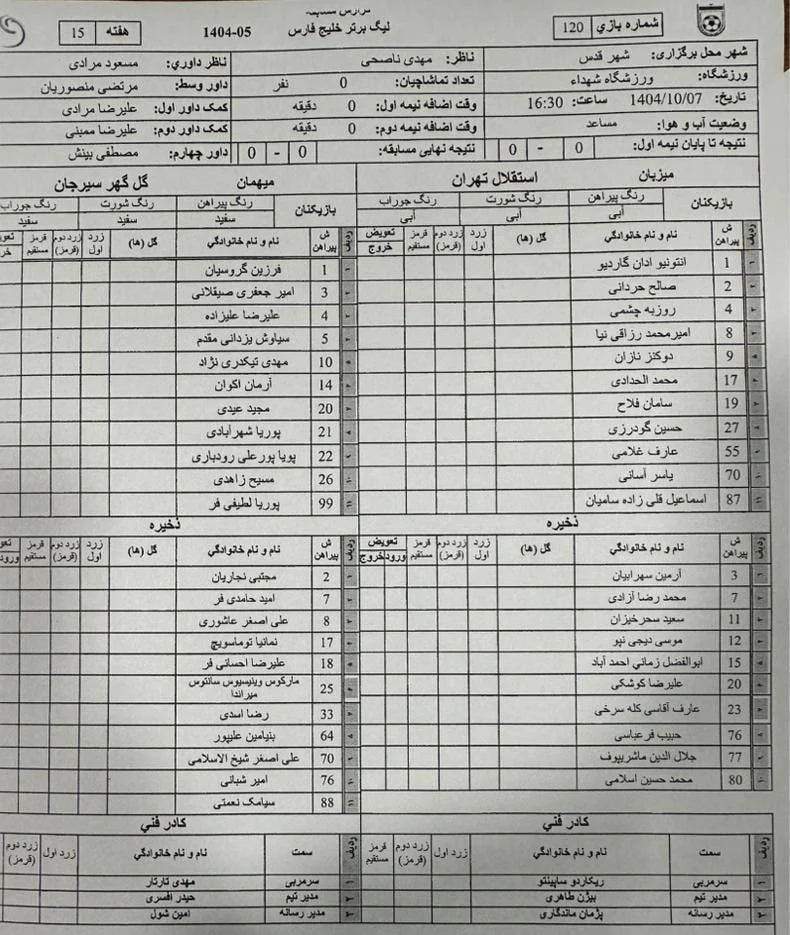 گزارش مسابقه
لیگ برتر خلیج فارس
1404-05
شماره بازي 120
هفته 15
شهر محل برگزاری: شهر قدس
ناظر: مهدی ناصحی
ناظر داوري: مسعود مرادی
ورزشگاه: ورزشگاه شهداء
تعداد تماشاچیان: 0 نفر
داور وسط: مرتضی منصوریان
تاریخ: 1404/10/07 ساعت: 16:30
وقت اضافه نیمه اول: 0 دقیقه
کمک داور اول: علیرضا مرادی
وضعیت آب و هوا: مساعد
وقت اضافه نیمه دوم: 0 دقیقه
کمک داور دوم: علیرضا ممبنی
نتیجه تا پایان نیمه اول: 0 - 0
نتیجه نهایی مسابقه: 0 - 0
داور چهارم: مصطفی بینش
میزبان استقلال تهران
بازیکنان
رنگ پیراهن رنگ شورت رنگ جوراب
آبی آبی آبی
ردیف ش پیراهن نام و نام خانوادگي گل (ها) زرد اول زرد دوم (قرمز) قرمز مستقیم تعویض خروج
1 انتونیو ادان گاردیو
2 صالح حردانی
4 روزبه چشمی
8 امیرمحمد رزاقی نیا
9 دوکنز نازان
17 محمد الحدادی
19 سامان فلاح
27 حسین گودرزی
55 عارف غلامی
70 یاسر آسانی
87 اسماعیل قلی زاده سامیان
ذخیره
ردیف ش پیراهن نام و نام خانوادگي گل (ها) زرد اول زرد دوم (قرمز) قرمز مستقیم تعویض ورود خروج
3 آرمین سهرابیان
7 محمد رضا آزادی
11 سعید سحرخیزان
12 موسی دیجی نپو
15 ابوالفضل زماني احمد آباد
20 علیرضا کوشکی
23 عارف آقاسی کله سرخی
76 حبیب فرعباسی
77 جلال الدین ماشریپوف
80 محمد حسین اسلامی
کادر فني
ردیف سمت نام و نام خانوادگي زرد اول زرد دوم (قرمز) قرمز مستقیم
سرمربی ریکاردو ساپینتو
مدیر تیم بیژن طاهری
مدیر رسانه پژمان ماندگاری
میهمان گل گهر سیرجان
بازیکنان
رنگ پیراهن رنگ شورت رنگ جوراب
سفید سفید سفید
ردیف ش پیراهن نام و نام خانوادگي گل (ها) زرد اول زرد دوم (قرمز) قرمز مستقیم
1 فرزین گروسیان
3 امیر جعفری صیقلانی
4 علیرضا علیزاده
5 سیاوش یزدانی مقدم
10 مهدی تیکدری نژاد
14 آرمان اکوان
20 مجید عیدی
21 پوریا شهرآبادی
22 پویا پورعلی رودباری
26 مسیح زاهدی
99 پوریا لطیفی فر
ذخیره
ردیف ش پیراهن نام و نام خانوادگي گل (ها) زرد اول زرد دوم (قرمز) قرمز مستقیم ورود
2 مجتبی نجاریان
7 امید حامدی فر
8 علی اصغر عاشوری
17 نمانیا توماسویچ
18 علیرضا احسانی فر
25 مارکوس وینیسیوس سانتوس میراندا
33 رضا اسدی
64 بنیامین علیپور
70 علی اصغر شیخ الاسلامی
76 امیر شبانی
88 سیامک نعمتی
کادر فني
ردیف سمت نام و نام خانوادگي زرد اول زرد دوم (قرمز)
سرمربی مهدی تارتار
مدیر تیم حیدر افسری
مدیر رسانه امین شول